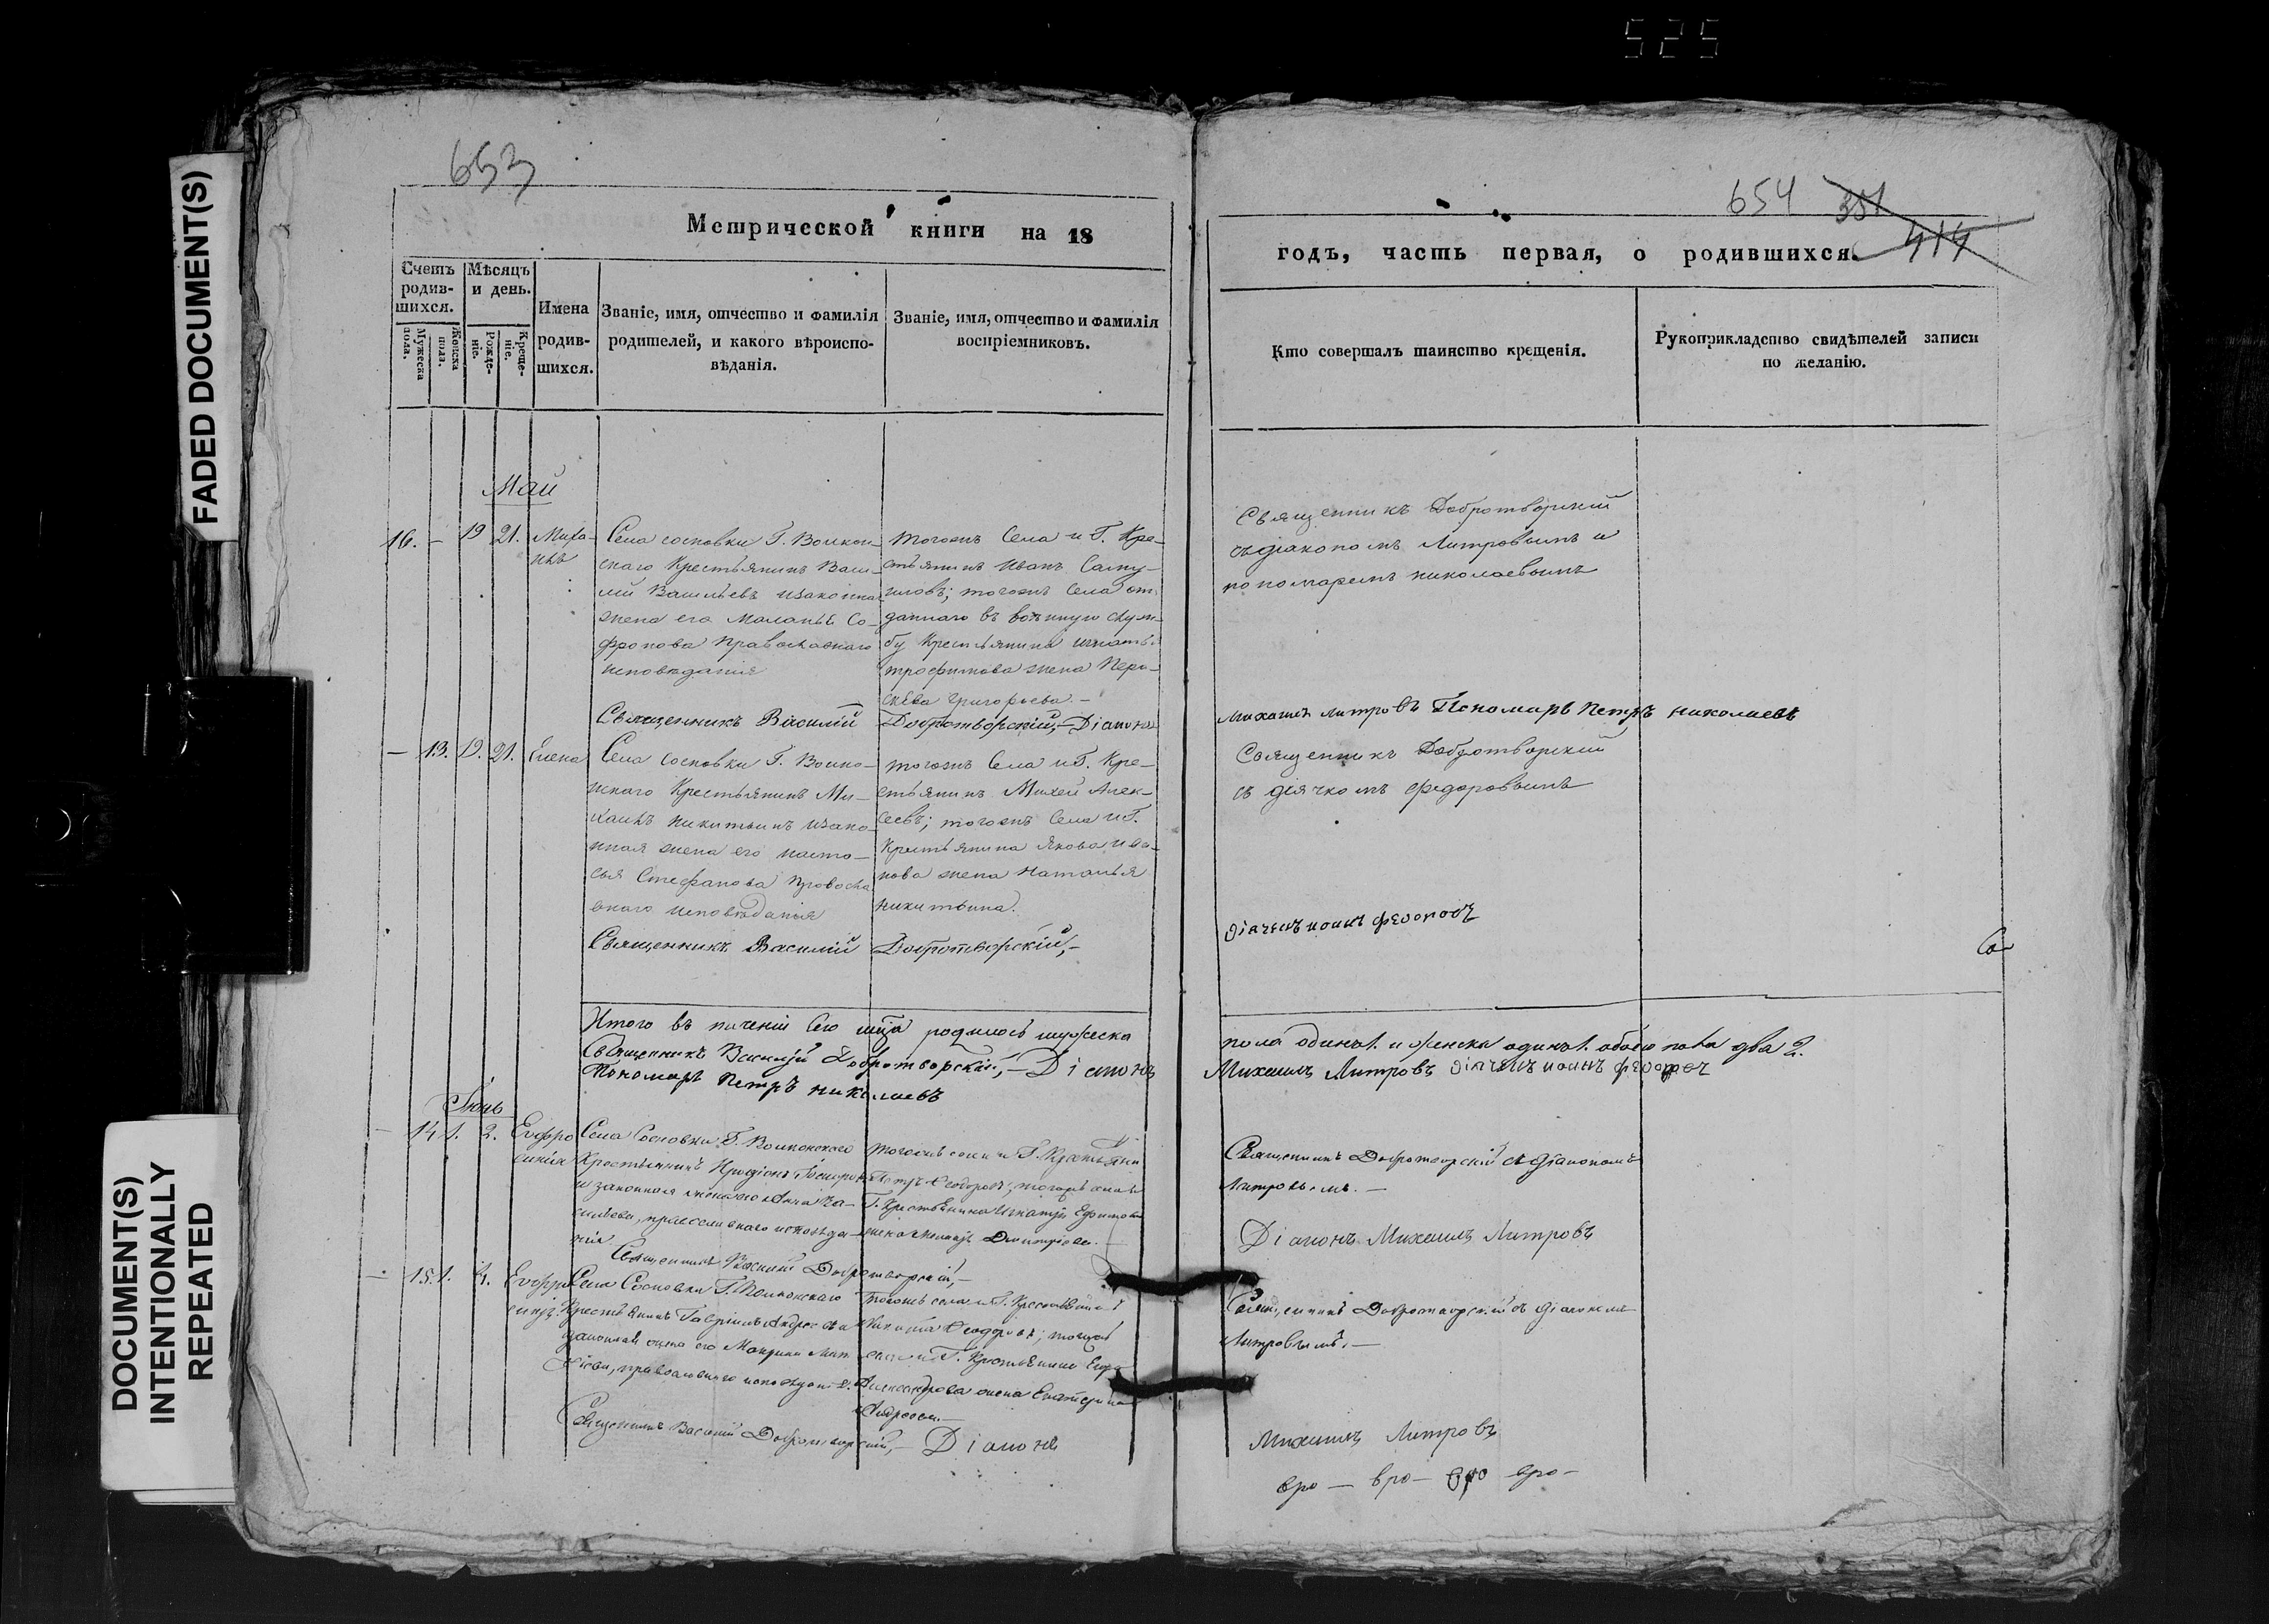 525
FADED DOCUMENT(S)
DOCUMENT(S)
INTENTIONALLY
REPEATED
653
Метрической книги на 18
Счетъ родив-шихся.
Мужеска пола.
Женска пола.
Мѣсяцъ и день.
Рожде-ніе.
Креще-ніе.
Имена родив-шихся.
Званіе, имя, отчество и фамилія
родителей, и какого вѣроиспо-
вѣданія.
Званіе, имя, отчество и фамилія
воспріемниковъ.
Май
16. – 19 21. Миха-
илъ
Села сосновки Г. Волкон-
скаго Крестьянинъ Васи-
лій Васильевъ изаконная
жена его Маланья Со-
фронова православнаго
исповѣданія
тогожъ Села и Г. Кре-
стьянинъ Иванъ
тогожъ Села от
даннаго въ военную служ-
бу Крестьянина
трофимова жена Пера-
скева григорьева. –
Священникъ Василій Добротворскій, – Діаконъ
– 13. 19. 21. Елена
Села сосновки Г. Волко-
нскаго Крестьянинъ Ми-
хаилъ никитинъ изако-
нная жена его наста-
сья Стефанова правосла
внаго исповѣданія
тогожъ Села и Г. Кре-
стьянинъ Михей Алек-
сеевъ; тогожъ Села и Г.
Крестьянина Якова ива-
нова жена наталья
никитина.
Священникъ Василій Добротворскій, –
Итого въ теченіи Сего мца родилось мужеска
Священникъ Василій Добротворскій, – Діаконъ
Пономарь Петръ николаевъ
Іюнь
– 14. 1. 2. Евфро
синія
Села Сосновки Г. Волконскаго
Крестьянинъ
и законная жена его Анна Ва-
сильева, православнаго исповѣда-
нія
тогожъ села и Г. Крестьяни
Петръ Ѳеодоровъ; тогожъ села и
Г. Крестьянина Игнатія Ефимова
жена Дмитріева. –
Священникъ Василій Добротворскій, –
– 15. 1. Евфро
синія
Села Сосновки Г. Волконскаго
Крестьянинъ Гавріилъ Андреевъ и
законная жена его
православнаго исповѣданія.
тогожъ села и Г. Крестьянинъ
Никита Ѳеодоровъ; тогожъ
села и Г. Крестьянина
Александрова жена Екатерина
Андреева. –
Священникъ Василій Добротворскій, – Діаконъ
654 351
414
годъ, часть первая, о родившихся.
Кто совершалъ таинство крещенія.
Рукоприкладство свидѣтелей записи
по желанію.
Священникъ Добротворскій
съдіакономъ Литровымъ и
пономаремъ николаевымъ
Михаилъ литровъ Пономарь Петръ николаевъ
Священникъ Добротворскій
съ дьячкомъ федоровымъ
Со
пола одинъ 1. и женска одинъ 1. обоего пола два 2.
Михаилъ Литровъ
Священникъ Добротворскій съ діакономъ
Литровымъ. –
Діаконъ Михаилъ Литровъ
Священникъ Добротворскій съ діакономъ
Литровымъ. –
Михаилъ Литровъ